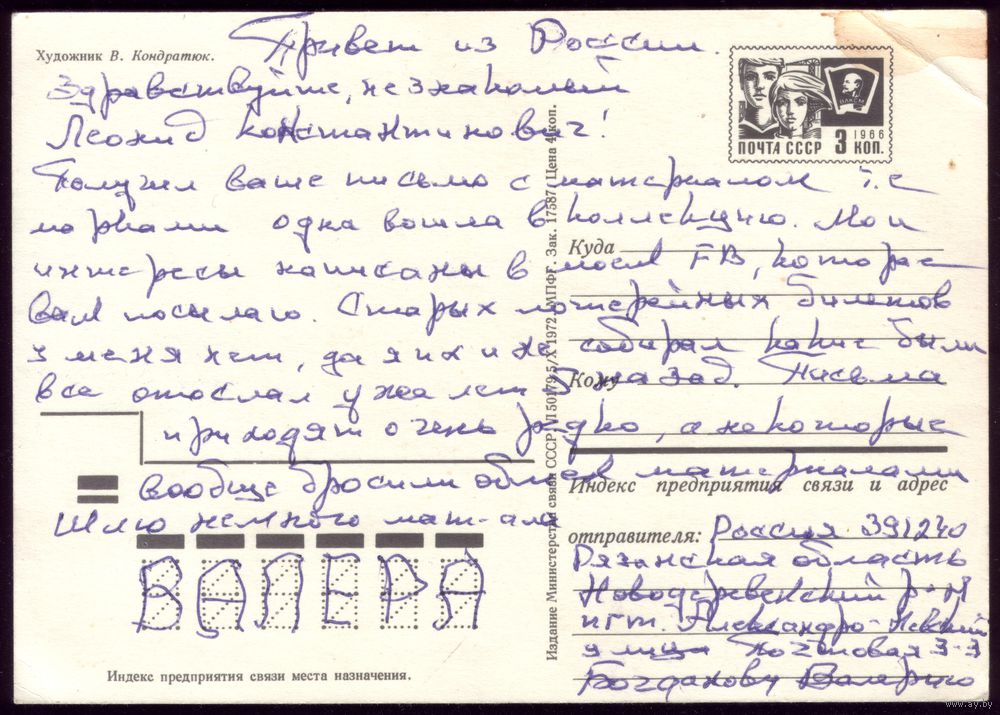 Художник В. Кондратюк.
Привет из России.
Здравствуйте, незнакомый
Леонид Константинович!
Получил ваше письмо с материалом т.е
марками одна вошла в коллекцию. Мои
интересы написаны в моем FB, которое
вам посылаю. Старых лотерейных билетов
у меня нет, да я их и не собирал какие были
все отослал уже лет 5 назад. Письма
приходят очень редко, а некоторые
вообще бросили обмен материалами
Шлю немного мат-ала
ВАЛЕРА
Индекс предприятия связи места назначения.
Издание Министерства связи СССР. 150179 5/X 1972. МПФГ. Зак. 17587. Цена 4 коп.
ВЛКСМ
1966
ПОЧТА СССР 3 КОП.
Куда
Кому
Индекс предприятия связи и адрес
отправителя: Россия 391240
Рязанская область
Новодеревенский р-н
пгт. Александро-Невский
улица Почтовая 3-3
Богданову Валерию
www.ay.by